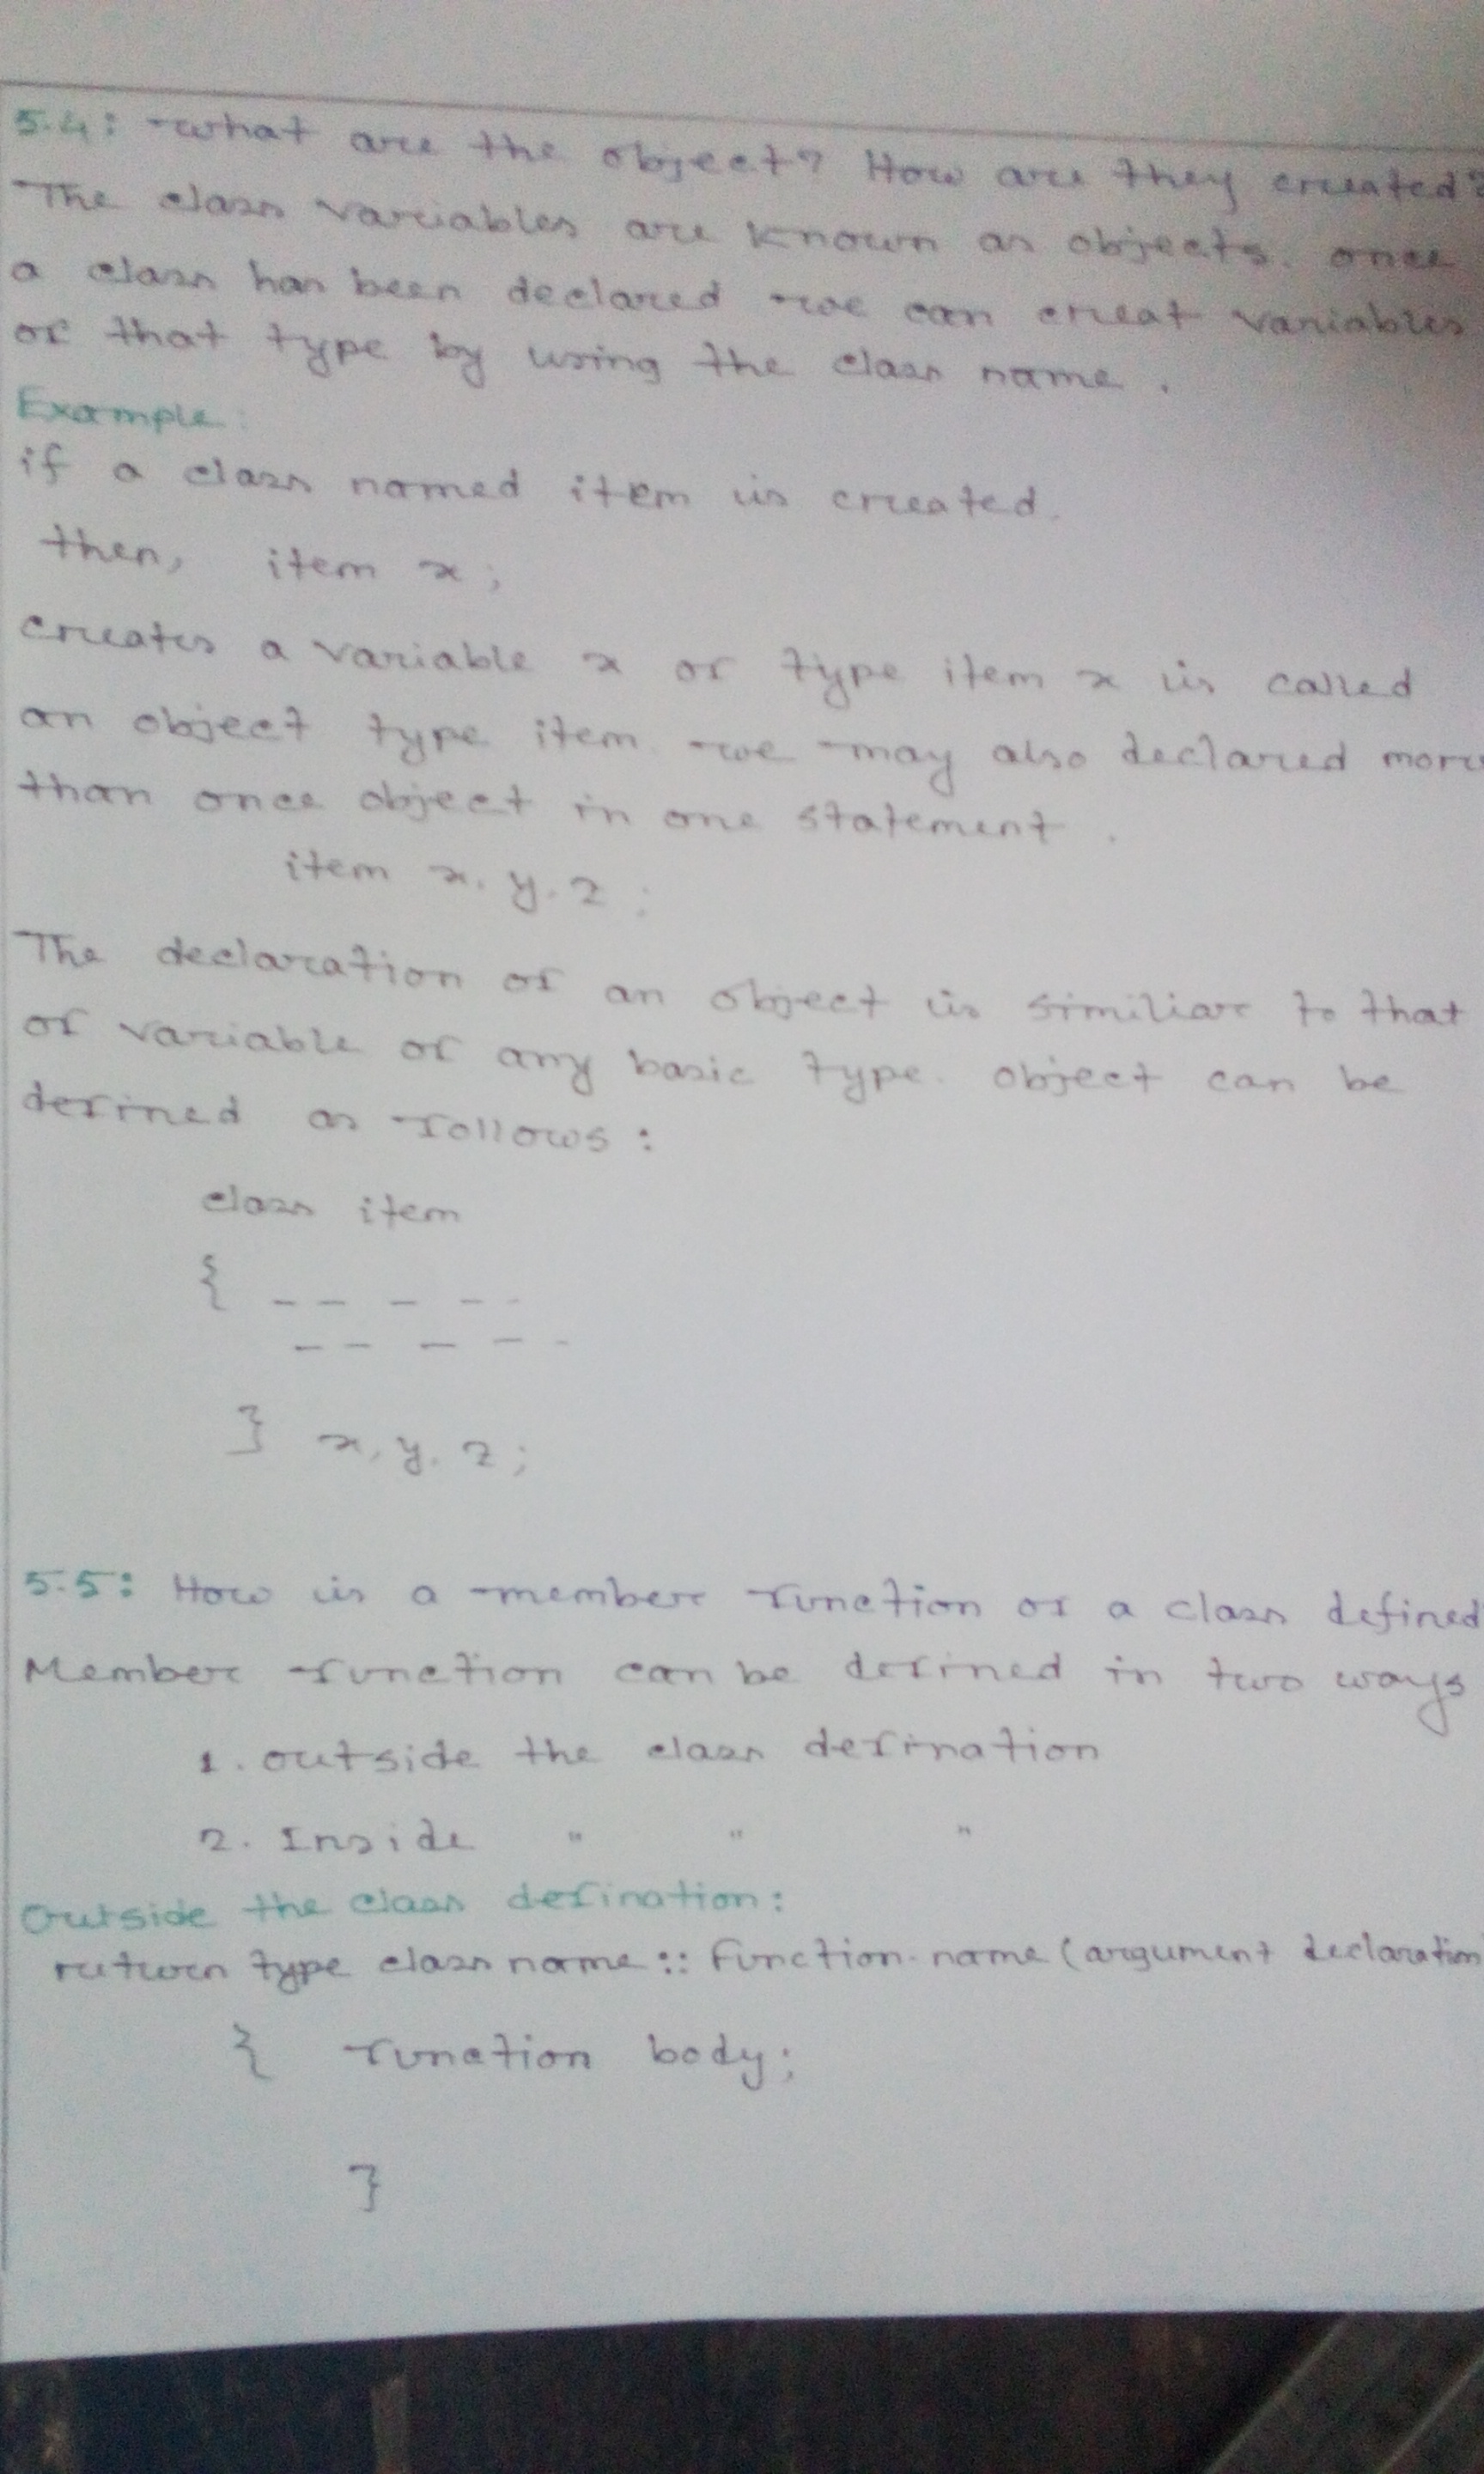 5.4: what are the object? How are they created?
The class variables are known as objects. once
a class has been declared we can creat variables
of that type by using the class name.
Example:
if a class named item is created.
then, item x;
creates a variable x of type item x is called
an object type item. we may also declared more
than once object in one statement.
item x, y, z;
The declaration of an object is similiar to that
of variable of any basic type. object can be
defined as follows:
class item
{ -- - --
-- - - -
} x, y, z;
5.5: How is a member function of a class defined
Member function can be defined in two ways
1. outside the class defination
2. Inside " " "
Outside the class defination:
return type class name :: function-name (argument declaration)
{ function body;
}